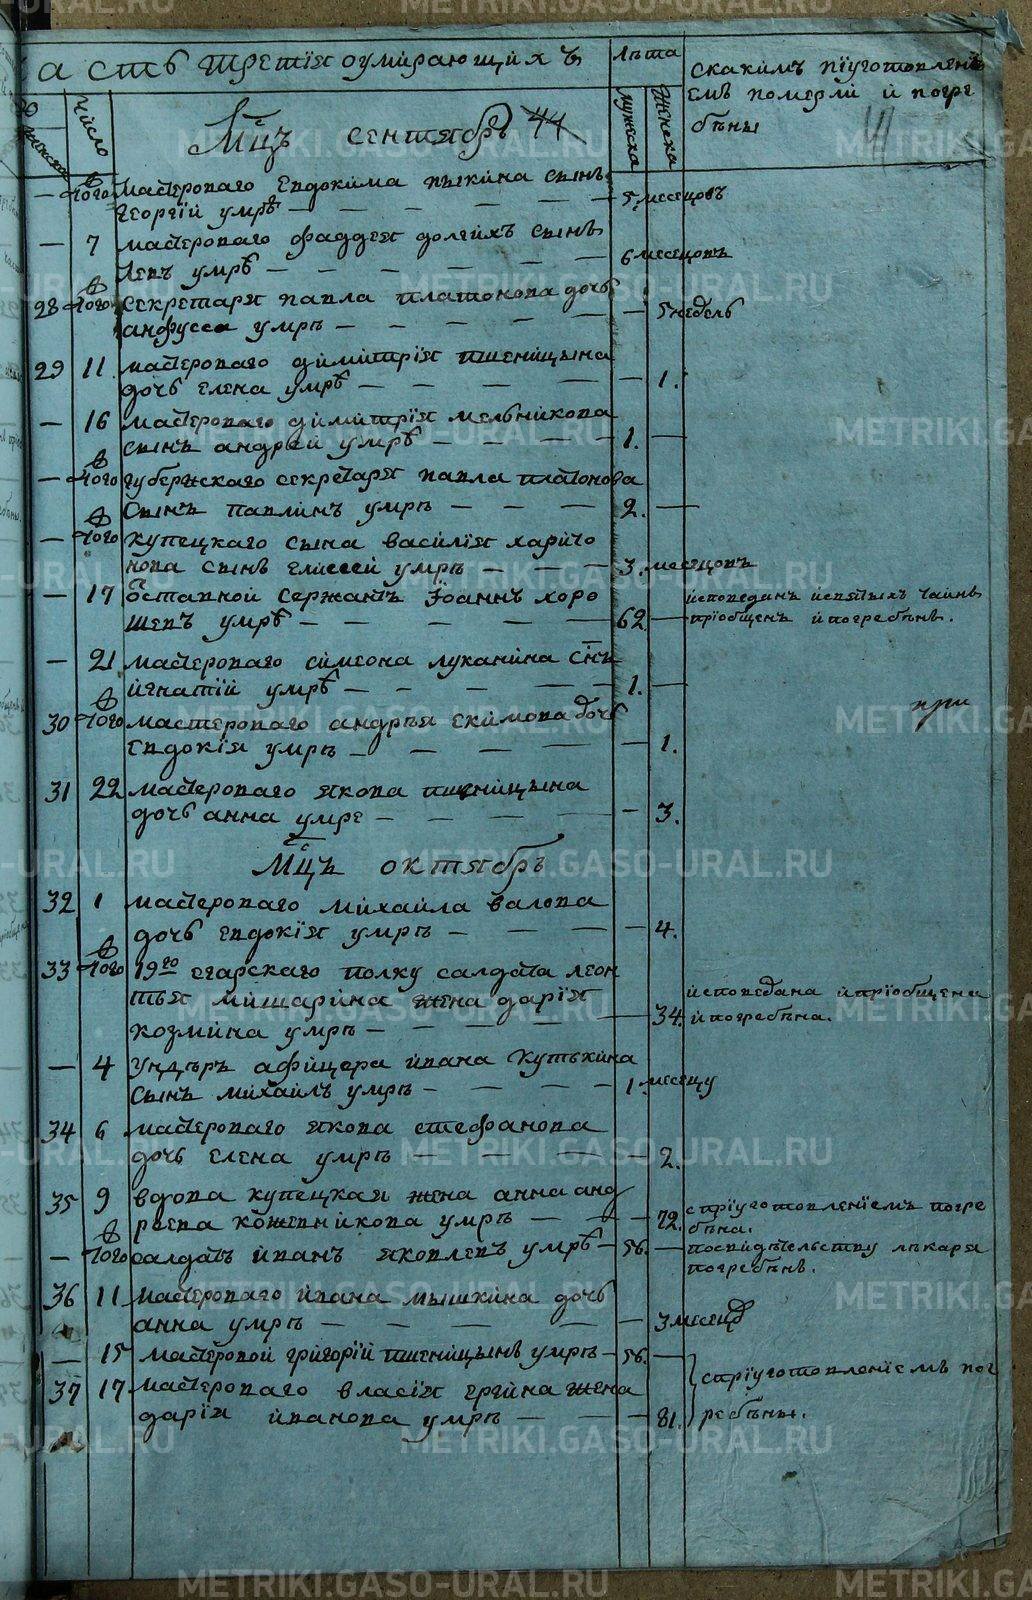 METRIKI.GASO-URAL.RU
асть третія оумирающихъ
лѣта
мужеска
женска
скакимъ пріуготовлені
емъ померли и погре
бѣны
женска
число
Мцъ сентябрь 44
— того мастероваго Евдокима сынъ
георгій умрѣ — 5 месецовъ
— 7 мастероваго фаддея долгихъ сынъ
левъ умрѣ — 6 месецовъ
28 того секретаря павла платонова дочь
анфусса умре — 5 недель
29 11 мастероваго димитрія пшеницына
дочь елена умрѣ — 1.
— 16 мастероваго димитрія мельникова
сынъ андрей умрѣ — 1. —
— того губернскаго секретаря павла платонова
сынъ павлинъ умре — 2. —
— того купецкаго сына василія харито
нова сынъ елиссей умре — 3. месецовъ
— 17 оставной сержантъ Іоаннъ хоро
шевъ умрѣ — 62. —
исповеданъ исвятыхъ таинъ
пріобщенъ и погребѣнъ.
— 21 мастероваго симеона луканина снъ
игнатій умрѣ — 1. —
30 того мастероваго андрея екимова дочь
евдокія умре — 1.
при
31 22 мастероваго якова пшеницына
дочь анна умре — 3.
Мцъ октябрь
32 1 мастероваго михаила валова
дочь евдокія умре — 4.
33 того 19го егарскаго полку салдата леон
тья мишарина жена дарія
козмина умре — 34.
исповедана и пріобщена
и погребѣна.
— 4 ундѣръ афицера ивана кутькина
сынъ михаилъ умре — 1. месецу
34 6 мастероваго якова стефанова
дочь елена умре — 2.
35 9 вдова купецкая жена анна анд
реева кожевникова умре — 72.
с пріуготовленіемъ погре
бѣна.
— того солдатъ иванъ яковлевъ умрѣ — 56. —
посвидѣтельству лѣкаря
погребѣнъ.
36 11 мастероваго ивана мышкина дочь
анна умре — 3 месецѡ
— 15 мастеровой григорій пшеницынъ умре — 56. —
37 17 мастероваго власія ергина жена
дарія иванова умре — 81.
спріуготовленіемъ пог
ребѣны.